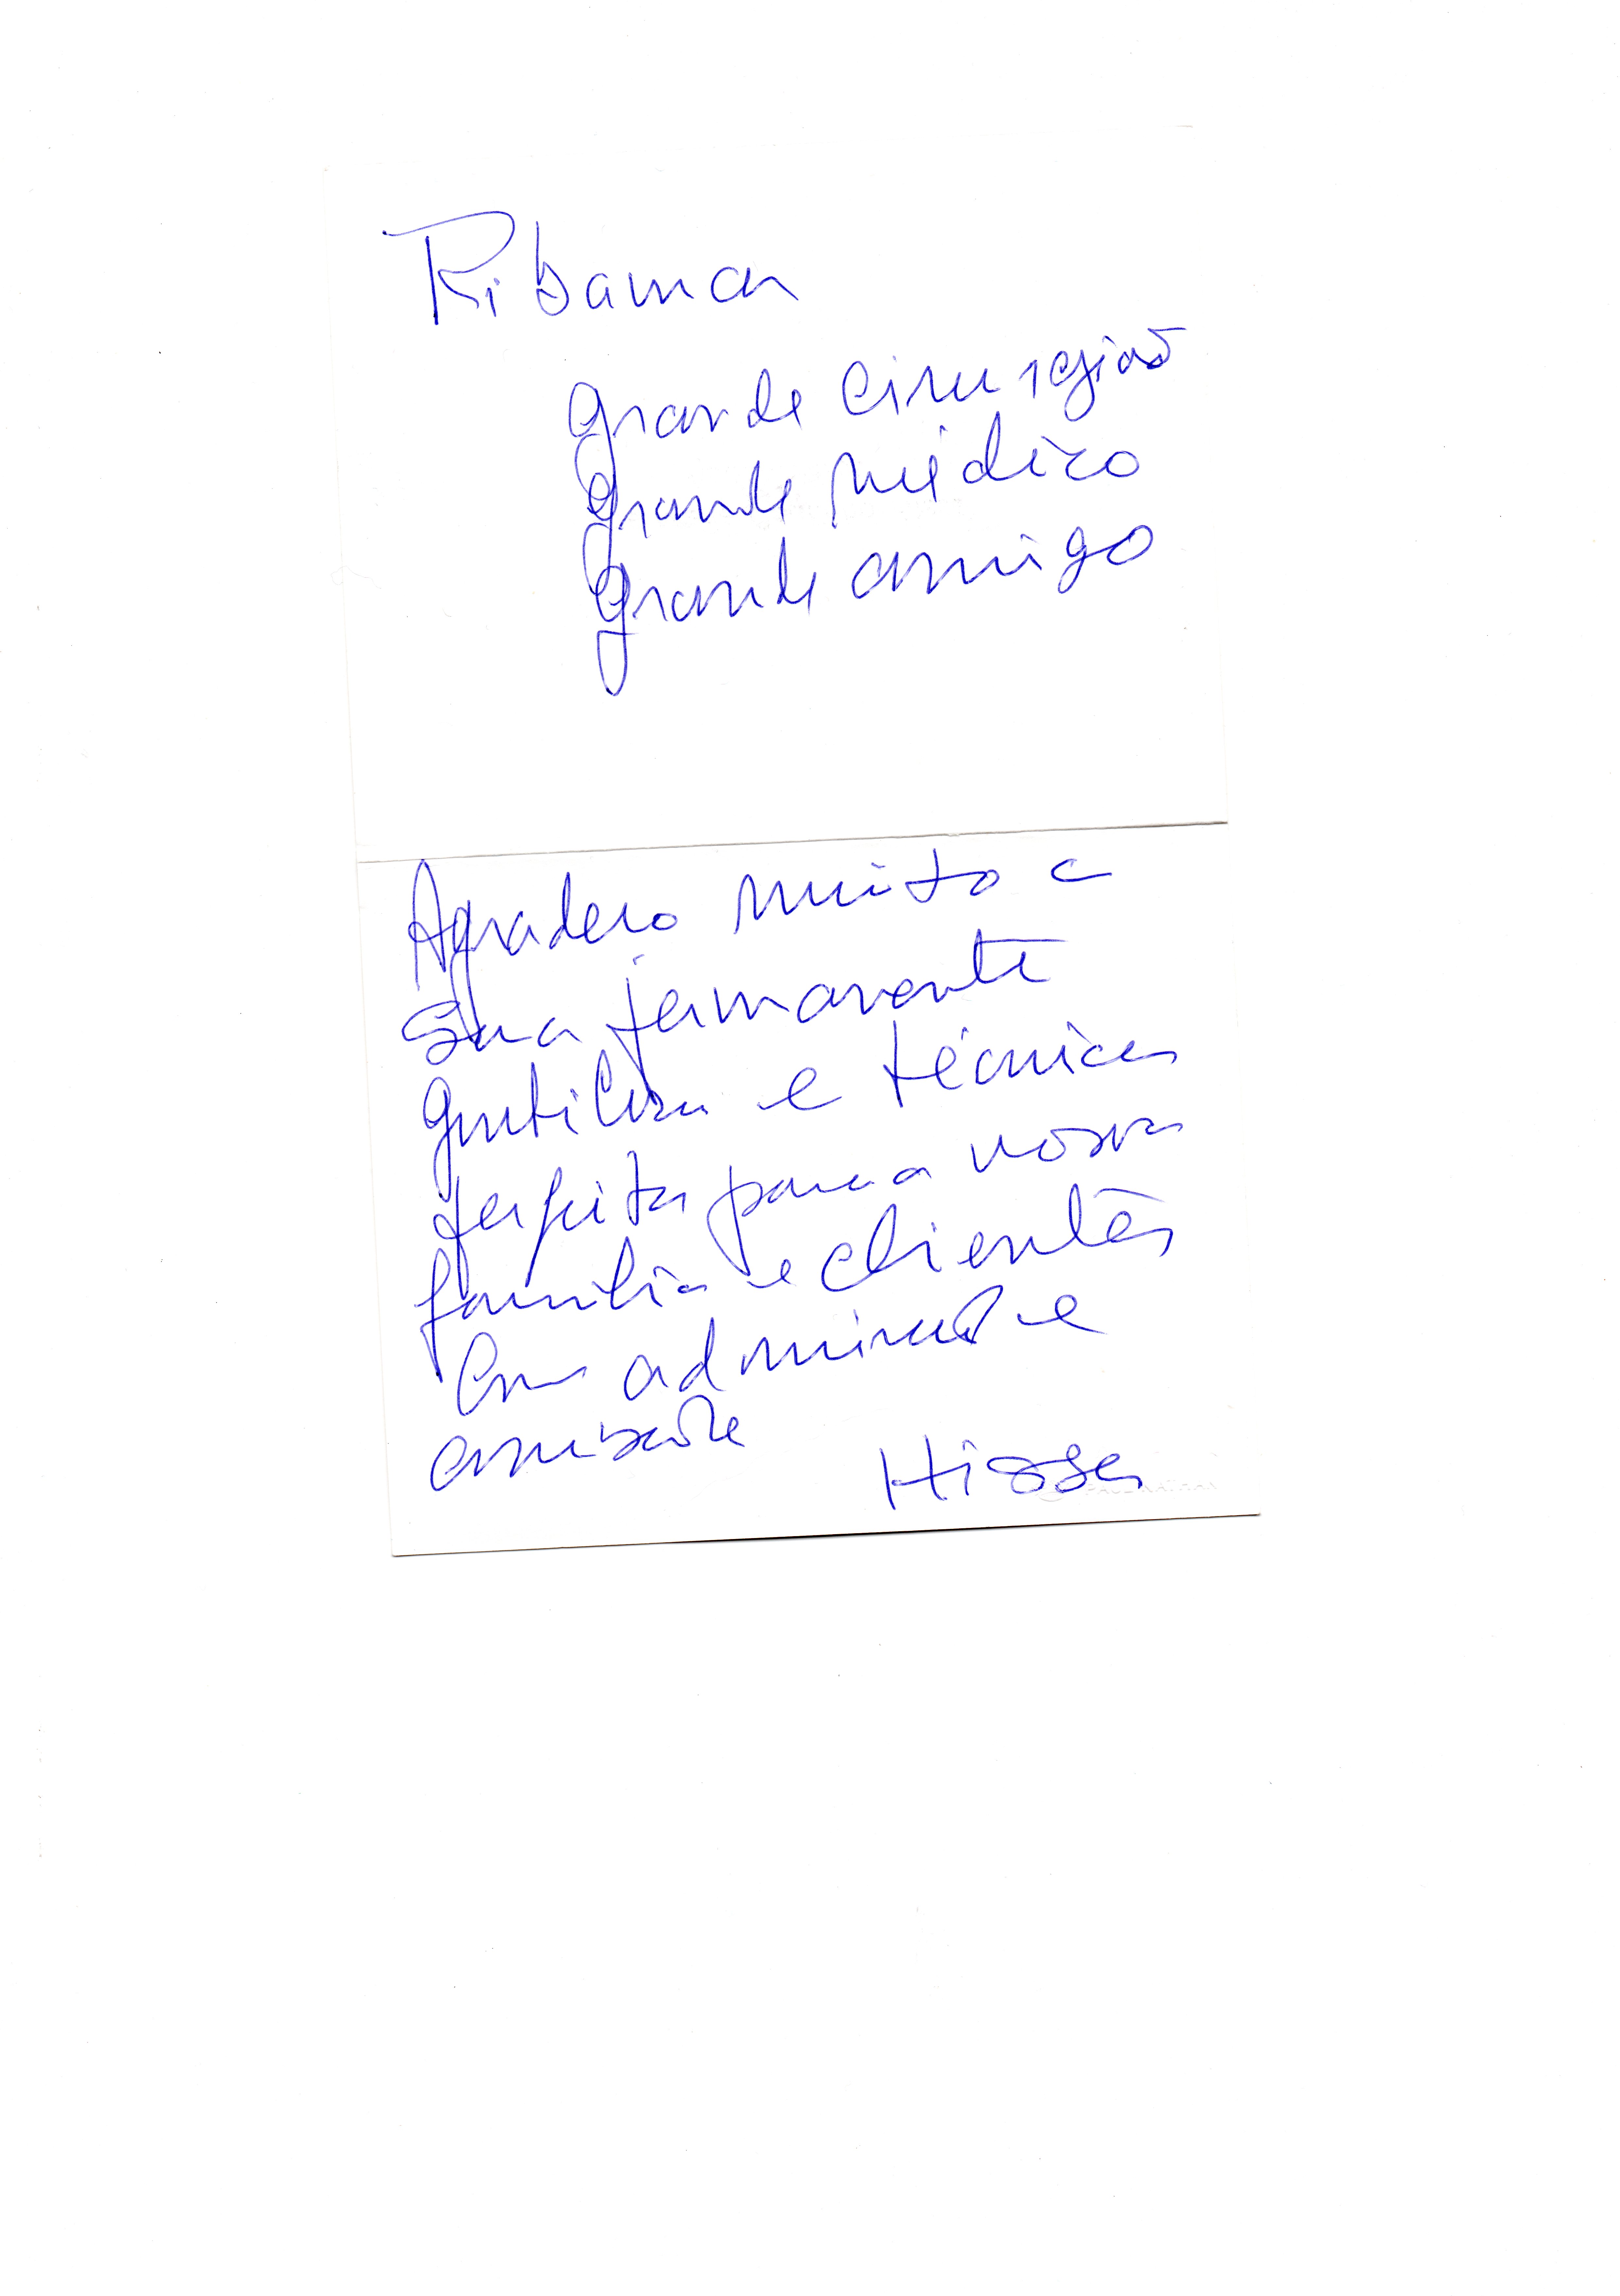 Ribamar
Grande cirurgião
Grande médico
Grande amigo
Agradeço muito a
sua permanente
gentileza e técnica
perfeita para nossa
família e clientes
Com admiração e
amizade